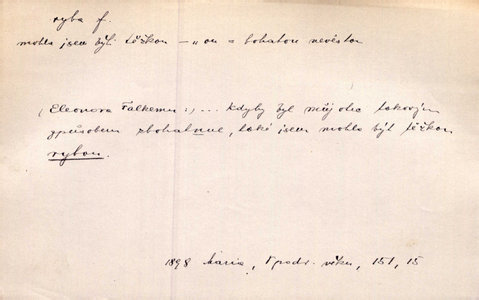 ryba f.
mohla jsem býti těžkou — „ou = bohatou nevěstou
(Eleonora Falkemu:) ... Kdyby byl můj otec takovým
způsobem zbohatnul, také jsem mohla být těžkou
rybou.
1898 Maria, V podv. věku, 151, 15